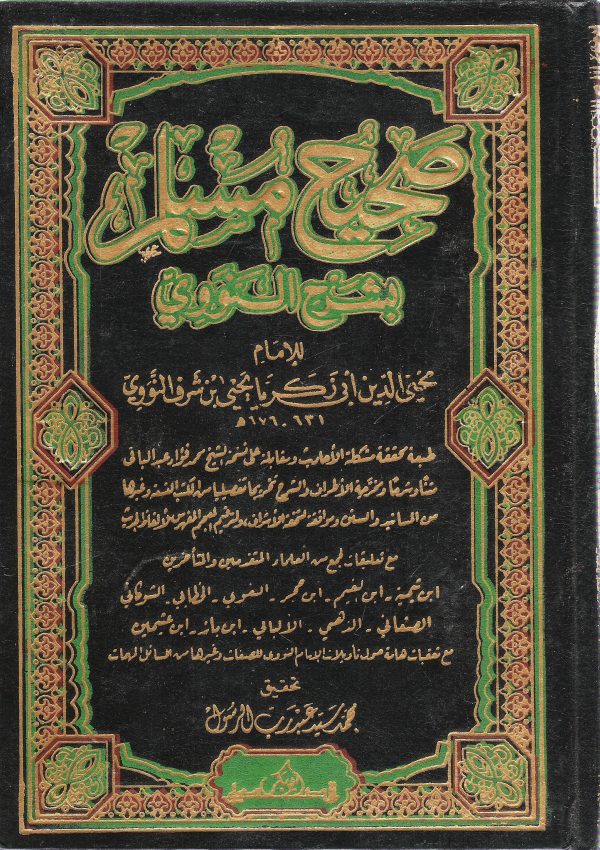 صحيح مسلم
بشرح النووي
للإمام
محيي الدين أبي زكريا يحيى بن شرف النووي
٦٣١ - ٦٧٦ هـ
طبعة محققة مشكلة الأحاديث ومقابلة على نسخة الشيخ محمد فؤاد عبد الباقي
متنًا وشرحًا ومخرجة الأطراف والشرح تخريجا تفصيليا من الكتب الستة وغيرها
من المسانيد والسنن وموافقة لتحفة الأشراف، والمعجم المفهرس لألفاظ الحديث
مع تعليقات لجمع من العلماء المتقدمين والمتأخرين
ابن تيمية - ابن القيم - ابن حجر - البغوي - الخطابي - الشوكاني
الصنعاني - الذهبي - الألباني - ابن باز - ابن عثيمين
مع تعقبات هامة حول تأويلات الإمام النووي للصفات وغيرها من المسائل المهمات
تحقيق
محمد سيد عبد رب الرسول